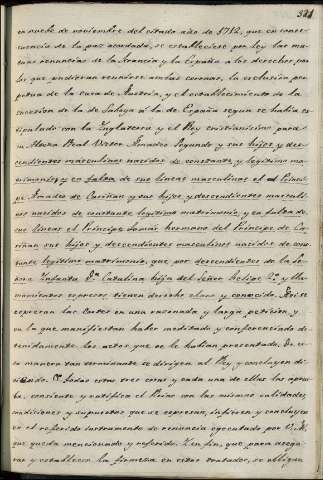 321
en nueve de noviembre del citado año de 1712, que en conse-
cuencia de la paz acordada, se estableciese por ley las mu-
tuas renuncias de la Francia y la España a los derechos, por
los que pudieran reunirse ambas coronas, la esclusion per-
petua de la casa de Austria, y el establecimiento de la
sucesion de la de Saboya á la de España segun se había es-
tipulado con la Inglaterra y el Rey cristianisimo para
su Alteza Real Victor Amadeo Segundo y sus hijos y des-
cendientes masculinos nacidos de constante, y legitimo ma-
trimonio, y en falta de sus lineas masculinas el al Princi-
pe Amadeo de Cariñan y sus hijos y descendientes masculi-
nos nacidos de constante legitimo matrimonio, y en falta de
sus lineas el Principe Tomás hermano del Principe de Ca-
riñan, sus hijos y descendientes masculinos nacidos de cons-
tante legitimo matrimonio, que por descendientes de la Se-
ñora Infanta Dª Catalina hija del Señor Felipe 2º y lla-
mamientos espresos tienen derecho claro y conocido. Asi se
espresan las Cortes en una razonada y larga peticion, y
en la que manifiestan haber meditado y conferenciado de-
tenidamente los actos que se le habian presentado. De es-
ta manera tan terminante se dirijen al Rey, y concluyen di-
ciendo. "Todas estas tres cosas y cada una de ellas las aprue-
ba, consiente y ratifica el Reino con las mismas calidades,
condiciones y supuestos que se espresan, infieren y concluyen
en el referido instrumento de renuncia egecutado por V. M.
que queda mencionado y referido. Y en fin, que para asegu-
rar y establecer la firmeza en estos tratados, se obliga